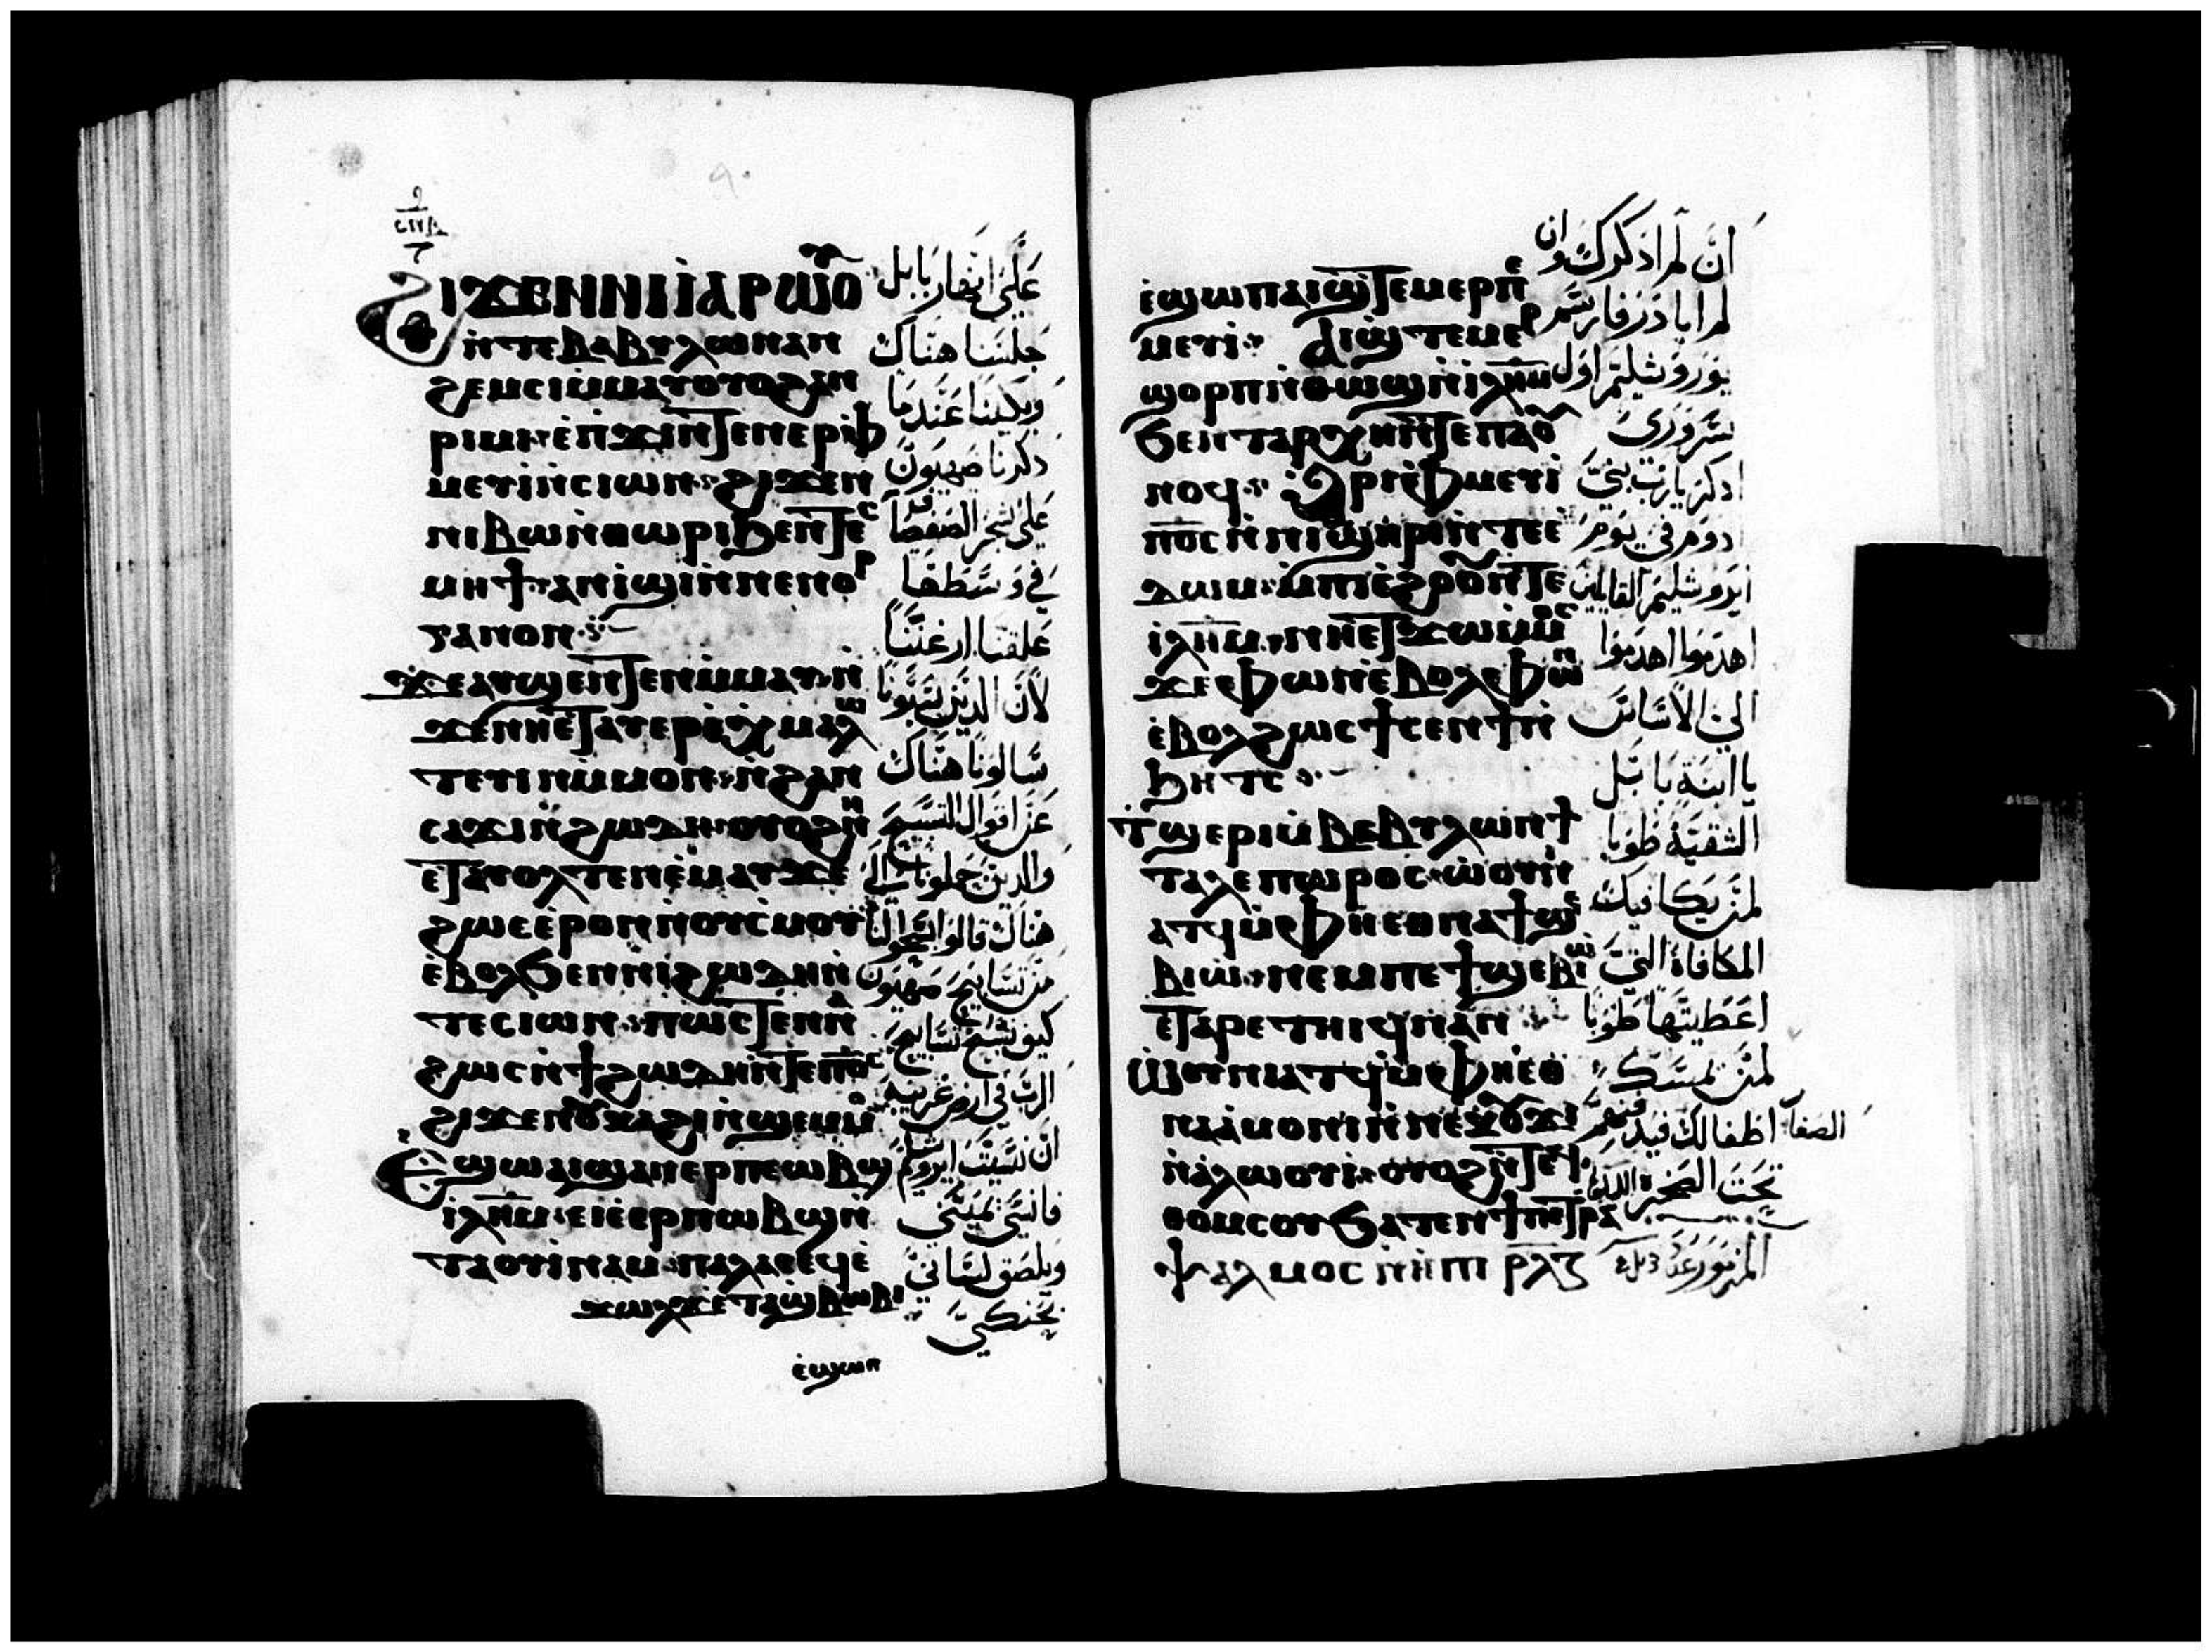 ϩⲓϫⲉⲛⲛⲓⲓⲁⲣⲱⲟⲩ
ⲛ̀ⲧⲉⲃⲁⲃⲩⲗⲱⲛⲁⲛ
ϩⲉⲙⲥⲓⲙ̀ⲙⲁⲩⲟⲩⲟϩⲁⲛ
ⲣⲓⲙⲓ·ⲉ̀ⲡ̀ϫⲓⲛⲧⲉⲛⲉⲣⲫ
ⲙⲉⲩⲓ̀ⲛ̀ⲥⲓⲱⲛ·ϩⲓϫⲉⲛ
ⲛⲓⲃⲱⲛ̀ⲑⲱⲣⲓϧⲉⲛⲧⲉⲥ
ⲙⲏϯ·ⲁⲛⲓ̀ϣⲓⲛ̀ⲛⲉⲛⲟⲣ
ⲅⲁⲛⲟⲛ
ϫⲉⲁⲩϣⲉⲛⲧⲉⲛⲙ̀ⲙⲁⲩⲛ̀
ϫⲉⲛⲏⲉⲧⲁⲩⲉⲣⲉ̀ⲭⲙⲁⲗⲱ
ⲧⲉⲩⲓⲛⲙ̀ⲙⲟⲛ·ⲛ̀ϩⲁⲛ
ⲥⲁϫⲓⲛ̀ϩⲱⲇⲏ·ⲟⲩⲟϩⲛⲏ
ⲉⲧⲁⲩⲟⲗⲧⲉⲛⲉ̀ⲙⲁⲩϫⲉ
ϩⲱⲥⲉ̀ⲣⲟⲛⲛ̀ⲟⲩⲥ̀ⲙⲟⲩ
ⲉ̀ⲃⲟⲗϧⲉⲛⲛⲓϩⲱⲇⲏⲛ̀
ⲧⲉⲥⲓⲱⲛ·ⲡⲱⲥⲧⲉⲛⲛⲁ
ϩⲱⲥⲛ̀ϯϩⲱⲇⲏⲛ̀ⲧⲉⲡⲟ̅ⲥ̅
ϩⲓϫⲉⲛⲟⲩⲕⲁϩⲓⲛ̀ϣⲉⲙⲙⲟ
ⲉ̀ϣⲱⲡⲁⲓϣⲁⲛⲉⲣⲡⲉⲱⲃϣ
ⲓⲗ̅ⲏ̅ⲙ̅·ⲉⲓⲉ̀ⲉⲣⲡⲱⲃϣⲛ̀
ⲧⲁⲟⲩⲓ̀ⲛⲁⲙ·ⲡⲁⲗⲁⲥⲉϥⲉ̀
ϫⲱⲗϫⲉⲧⲁϣⲃⲱⲃⲓ
ⲉ̀ϣⲱⲡ
على انهار بابل
جلسنا هناك
وبكينا عندما
ذكرنا صهيون
على شجر الصفصاف
في وسطها
علقنا ارغننا
لان الذين سبونا
سالونا هناك
عن اقوال التسبيح
والذين
هناك قالوا سبحوا لنا
من تسابيح صهيون
كيف نسبح تسابيح
الرب في ارض غريبة
ان نسيت ايروشليم
فانسى يميني
ويلصق لساني
بحنكي
ⲉ̀ϣⲱⲡⲁⲓϣ̀ⲧⲉⲙⲉⲣⲡⲉ
ⲙⲉⲩⲓ̀· ⲁⲓϣ̀ⲧⲉⲙⲉⲣ
ϣⲟⲣⲡⲓⲛ̀ⲑⲱϣⲛ̀ⲓⲗ̅ⲏ̅ⲙ̅
ϧⲉⲛⲧⲁⲣⲭⲏⲛ̀ⲧⲉⲡⲁⲟⲩ
ⲛⲟϥ· ⲁⲣⲓⲫ̀ⲙⲉⲩⲓ̀
ⲡⲟ̅ⲥ̅ⲛ̀ⲛⲓϣⲏⲣⲓⲛ̀ⲧⲉⲉ̀
ⲇⲱⲙ·ⲙ̀ⲡⲓⲉ̀ϩⲟⲟⲩⲛ̀ⲧⲉ
ⲓⲗ̅ⲏ̅ⲙ̅·ⲛⲏⲉⲧϫⲱⲙ̀ⲙⲟⲥ
ϫⲉⲫⲱⲛⲉ̀ⲃⲟⲗⲫⲱⲛ
ⲉ̀ⲃⲟⲗϩⲱⲥϯⲥⲉⲛϯⲛ̀
ϧⲏⲧⲥ
ⲧϣⲉⲣⲓⲙ̀ⲃⲁⲃⲩⲗⲱⲛϯ
ⲧⲁⲗⲉⲡⲱⲣⲟⲥ·ⲱⲟⲩⲛⲓ
ⲁⲧϥⲙ̀ⲫⲏⲉⲑⲛⲁϯϣⲉ
ⲃⲓⲱ·ⲛⲉⲙⲡⲉϯϣⲉⲃⲓⲱ
ⲉⲧⲁⲣⲉⲧⲏⲓϥⲛⲁⲛ
ⲱⲟⲩⲛⲓⲁⲧϥⲙ̀ⲫⲏⲉⲑ
ⲛⲁⲁ̀ⲙⲟⲛⲓⲛ̀ⲛⲉⲕⲟⲩϫⲓ
ⲛ̀ⲁ̀ⲗⲱⲟⲩⲓ̀·ⲟⲩⲟϩⲛ̀ⲧⲉϥ
ⲑⲟⲙⲥⲟⲩϧⲁⲧⲉⲛϯⲡⲉⲧⲣⲁ
ⲯⲁⲗⲙⲟⲥⲛⲓⲙ ⲣⲗⲍ
ان لم اذكرك وان
لم ابادر فارسم
يوروشليم اول
سروري
اذكر يارب بني
ادوم في يوم
ايروشليم القائلين
اهدموا اهدموا
الى الاساس
يا ابنة بابل
الشقية طوبا
لمن يكافيك
المكافاة التي
اعطيتها طوبا
لمن يمسك
اطفالك الصغار
تحت الصخرة
المزمور عد